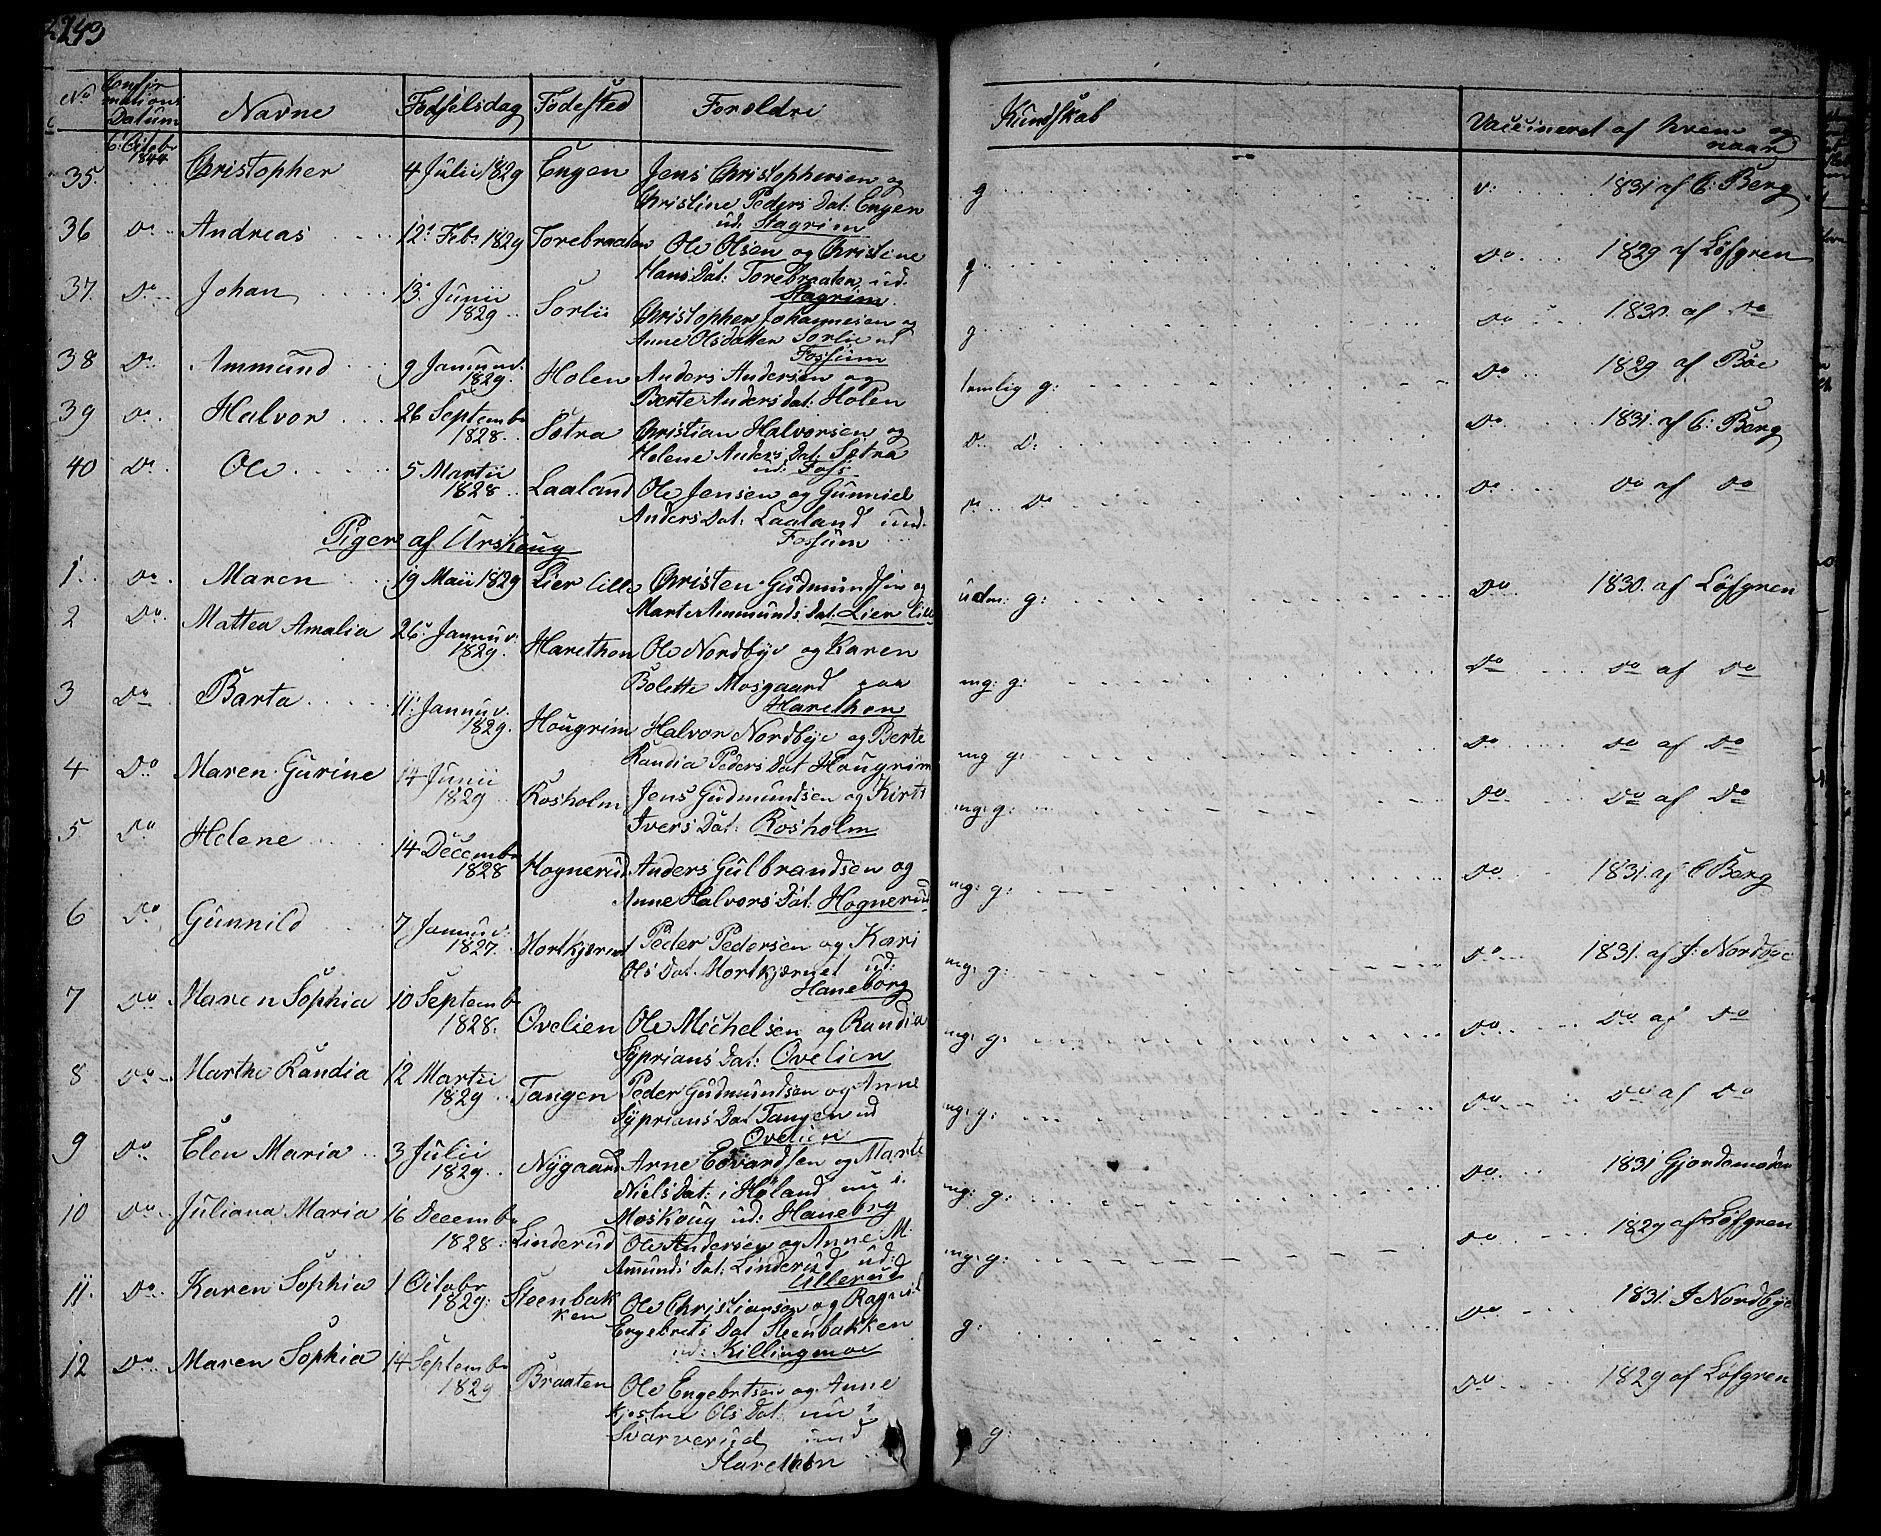 243
No Confirmations Datum Navne Fødselsdag Fødested Forældre Kundskab Vaccineret af hvem og naar
6 Octobr 1844
35. Christopher 4 Julii 1829 Engen Jens Christophersen og g v: 1831 af C: Berg
Christine Peders Dat: Engen
ud: Stagrim
36 Do Andreas 12 Feb: 1829 Torebraaten Ole Olsen og Christine g Do 1829 af Løfgren
Hans Dat: Torebraaten ud.
Stagrim
37. Do Johan 13 Junii 1829 Sorlii Christopher Johannesen og g Do 1830. af Do
Anne Olsdatter Sorlie ud
Fossum
38 Do Ammund 9 Januar: 1829. Holen Anders Andersen og temlig g: Do 1829 af Bøe
Berte Anders Dat: Holen
39 Do Halvor 26 Septembr 1828 Sætra Christian Halvorsen og D: D: Do 1831. af C: Berg
Helene Anders Dat: Sætra
ud: Foss
40 Do Ole 5 Martii 1828 Laaland Ole Jensen og Gunniel Do Do Do af Do
Anders Dat: Laaland und.
Fossum
Piger af Urskoug
1. Do Maren 19 Maii 1829 Lier lille Christen Gudmundsen og udm: g: Do 1830. af Løfgren
Marte Ammunds Dat: Lier lille
2 Do Mattea Amalia 26. Januv: 1829. Harethon Ole Nordbye og Karen mg: g: Do Do af Do
Bolette Mosgaard paa
Harethon
3 Do Barta 11. Januv. 1829. Hougrim Halvor Nordbye og Berte mg g: Do Do af Do
Randia Peders Dat Hougrim
4 Do Maren Gurine 14 Junii 1829 Rosholm Jens Gudmundsen og Kirti mg: g: Do Do af Do
Ivers Dat: Rosholm
5 Do Helene 14 Decembr 1828 Hognerud Anders Gulbrandsen og mg: g: Do 1831. af C Berg
Anne Halvors Dat: Hognerud
6 Do Gunnild 7 Januv: 1827. Mortkjærnet Peder Pedersen og Kari mg: g: Do 1831. af J: Nordbye
Ols Dat. Mortkjærnet ud:
Haneborg
7 Do Maren Sophia 10 Septembr 1828. Ovelien Ole Michelsen og Randia mg: g: Do Do af Do
Syprians Dat: Ovelien
8 Do Marthe Randia 12 Martii 1829 Tangen Peder Gudmundsen og Anne mg: g: Do Do af Do
Syprians Dat Tangen ud
Ovelien
9 Do Elen Maria 3 Julii 1829. Nygaard Arne Edvardsen og Marte mg: g: Do 1831 Gjordemoder
Niels Dat: i Høland nu i
Moskoug ud: Haneborg
10 Do Juliana Maria 16 Decembr 1828 Linderud Ole Andersen og Anne M. mg: g: Do 1829 af Løfgren
Amunds Dat: Linderud ud:
Ullerud
11. Do Karen Sophia 1 Octobr 1829: Steenbakken Ole Christianson og Ragnil g: Do 1831. J Nordbye
Engebrets Dat Steenbakken
ud: Killingmoe
12 Do Maren Sophia 14 Septembr 1829 Braaten Ole Engebretsen og Anne g: Do 1829 af Løfgren
Kjestine Ols Dat: nu i
Svarverud und
Harethon